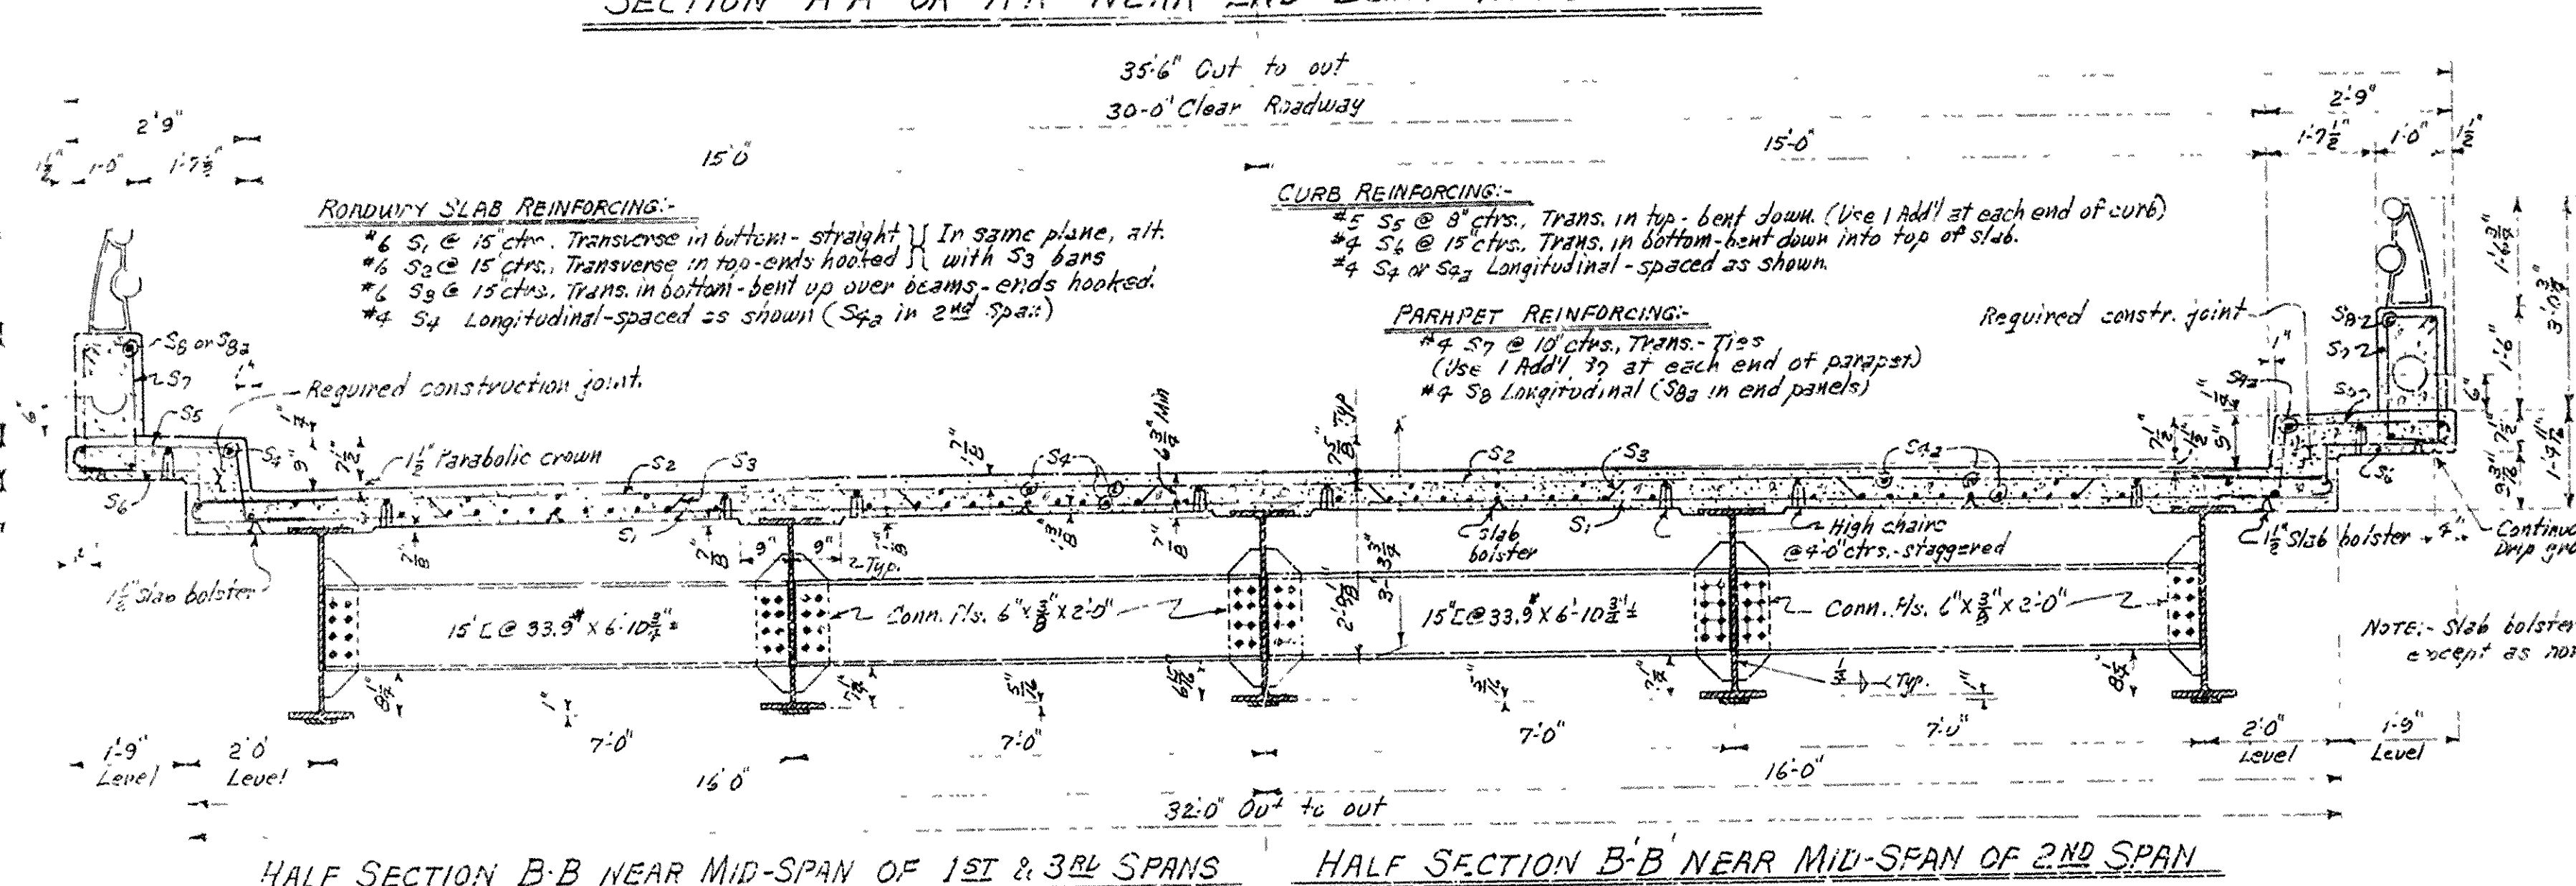 35'-6" Out to out
30'-0" Clear Roadway
2'9"
1½" 1'-0" 1'-7½"
15'0"
15'-0"
2'-9"
1'-7½" 1'-0" 1½"
ROADWAY SLAB REINFORCING:-
#6 S1 @ 15" ctrs. Transverse in bottom - straight } In same plane, alt.
#6 S2 @ 15" ctrs., Transverse in top-ends hooked } with S3 bars
#6 S3 @ 15" ctrs., Trans. in bottom - bent up over beams - ends hooked.
#4 S4 Longitudinal-spaced as shown (S4a in 2nd Span)
CURB REINFORCING:-
#5 S5 @ 8" ctrs., Trans. in top - bent down. (Use 1 Add'l at each end of curb)
#4 S6 @ 15" ctrs., Trans. in bottom-bent down into top of slab.
#4 S4 or S4a Longitudinal - spaced as shown.
PARAPET REINFORCING:-
#4 S7 @ 10" ctrs., Trans.- Ties
(Use 1 Add'l S7 at each end of parapet)
#4 S8 Longitudinal (S8a in end panels)
Required constr. joint
S8 or S8a
S7
Required construction joint.
S5
S4
S6
6"
1"
9"
7½"
1½" Parabolic crown
S2
S3
S4
S1
6¾" Min
7⅝" Typ
S2
S3
S4a
S1
S4a
S6
7½"
1½"
9"
6"
1'-6"
1'-6¾"
3'-0¾"
slab bolster
High chairs
@ 4'-0" ctrs.-staggered
1½" Slab bolster
4"
Drip
1½" Slab bolster
9" 9"
Typ.
15" [ @ 33.9# x 6'-10¾" ±
Conn. Pls. 6" x ⅜" x 2'-0"
2'-9⅛"
3'-3¾"
15" [ @ 33.9# x 6'-10¾" ±
Conn. Pls. 6" x ⅜" x 2'-0"
NOTE:- Slab bolster
except as
8¼"
1"
7¼"
7¼"
Typ.
1"
8¼"
1'-9" Level
2'0" Level
7'-0"
7'-0"
7'-0"
7'-0"
2'-0" Level
1'-9" Level
16'0"
16'-0"
32'-0" Out to out
HALF SECTION B-B NEAR MID-SPAN OF 1ST & 3RD SPANS
HALF SECTION B'-B' NEAR MID-SPAN OF 2ND SPAN